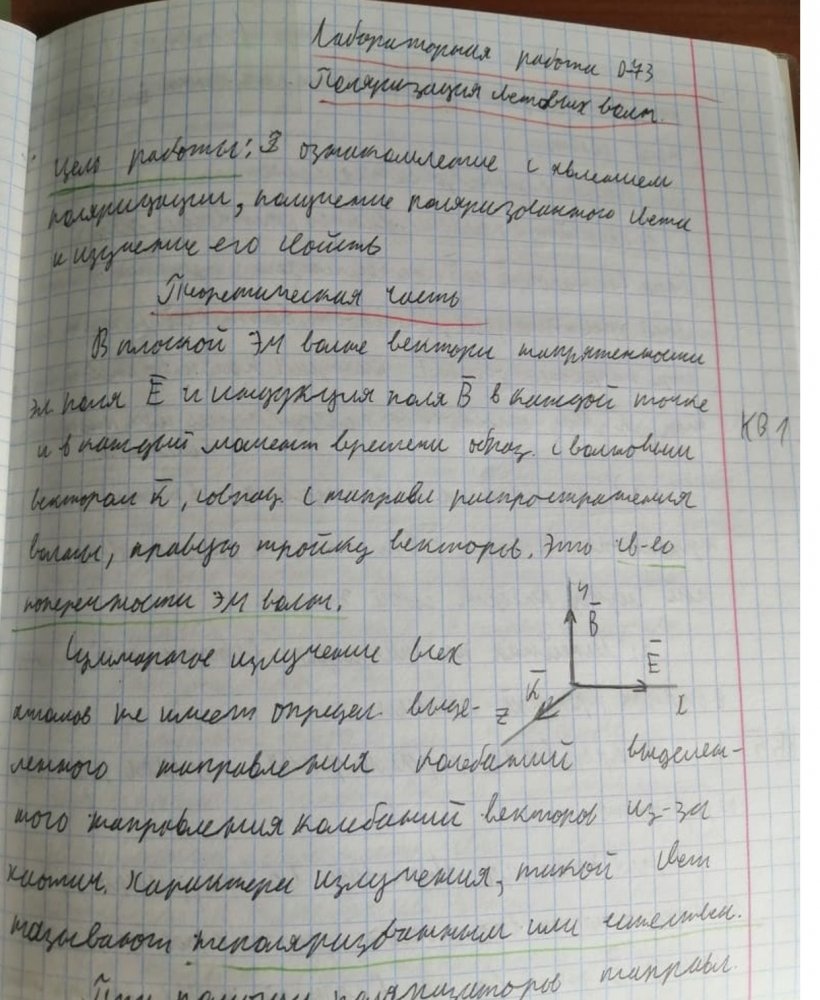 Лабораторная работа 0-73
Поляризация световых волн.
Цель работы: ознакомление с явлением
поляризации, получение поляризованного света
и изучение его свойств
Теоретическая часть
В плоской ЭМ волне векторы напряженности
эл. поля E̅ и индукция поля B̅ в каждой точке
и в каждый момент времени образ. с волновым
вектором K̅, совпад. с направл распространения
волны, правую тройку векторов. Это св-во
поперечности ЭМ волн.
KB1
Y
B̅
E̅
K̅
Z
X
Суммарное излучение всех
атомов не имеет определ. выде-
ленного направления колебаний выделен-
ного направления колебаний векторов из-за
хаотич. характера излучения, такой свет
называют неполяризованным или естествен.
При помощи поляризаторов направл.